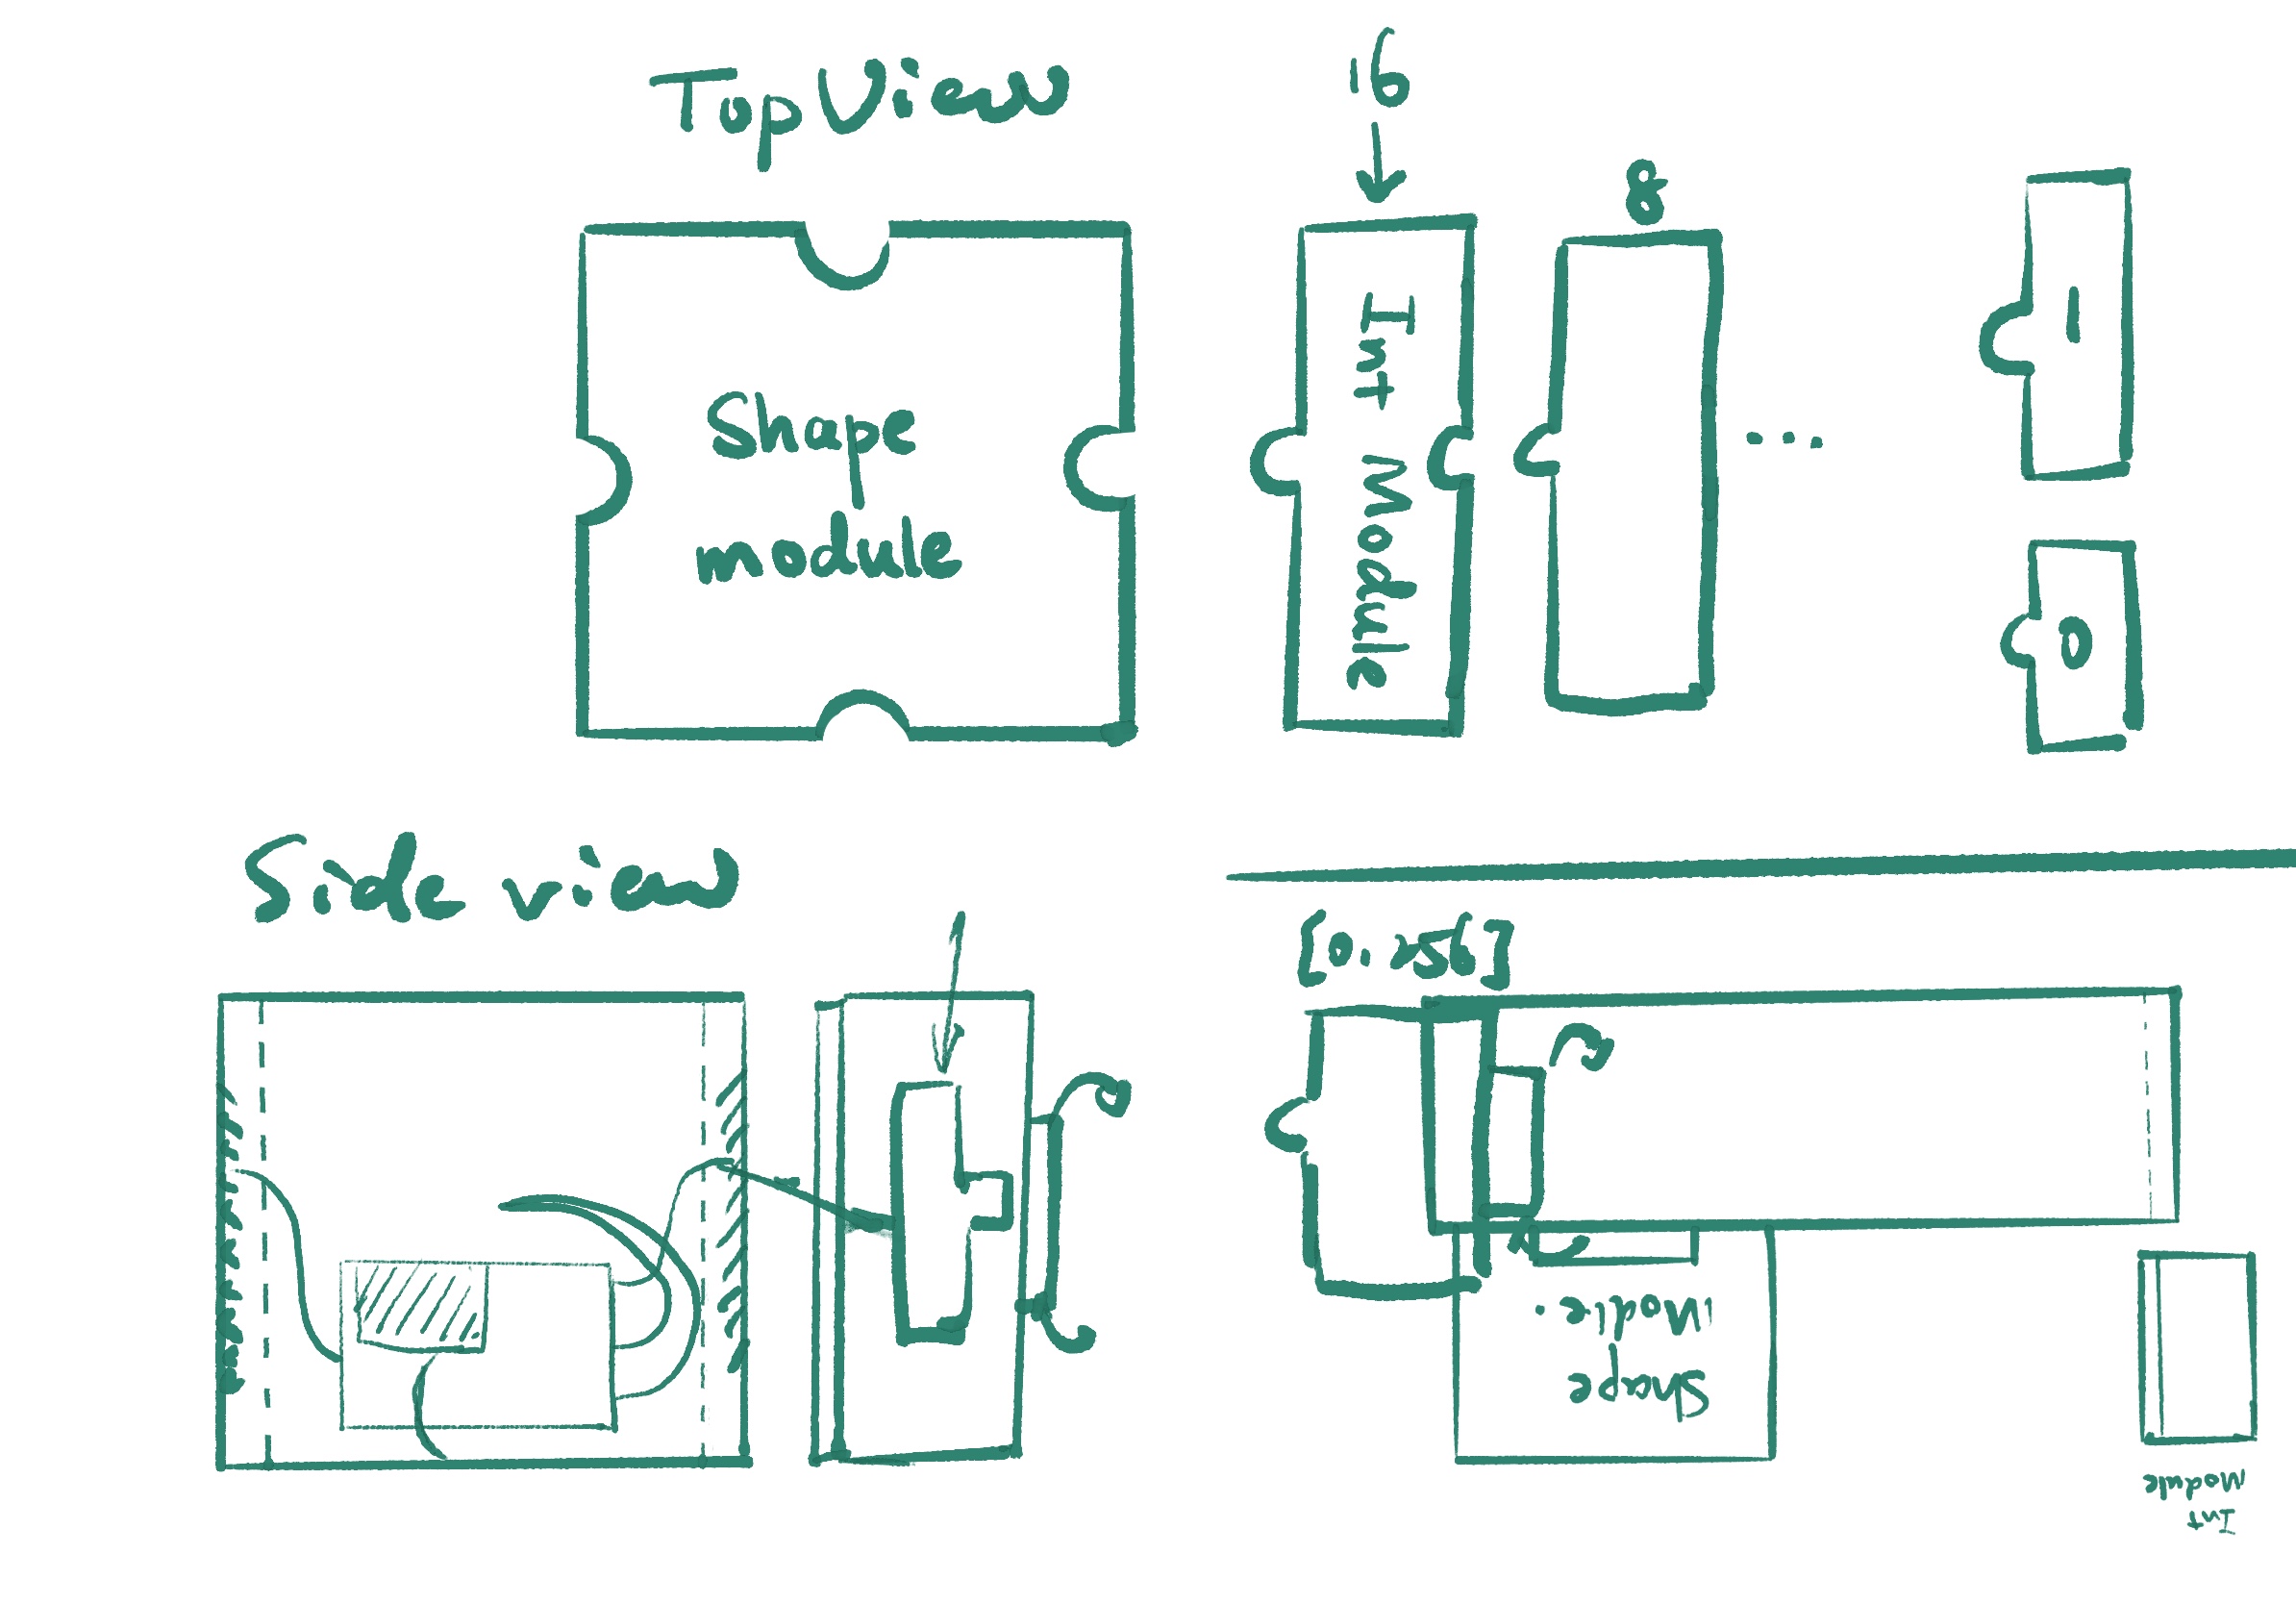 Top View
16
8
Shape
module
Int Module
...
1
0
Side view
[0, 256]
Shape
Module
Int
Module